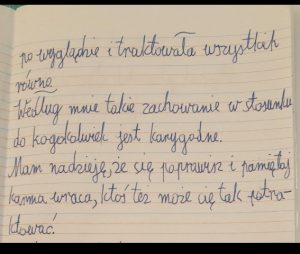 po wyglądzie i traktowała wszystkich
równo
Według mnie takie zachowanie w stosunku
do kogokolwiek jest karygodne.
Mam nadzieję, że się poprawisz i pamiętaj
karma wraca, ktoś też może cię tak potra-
ktować.